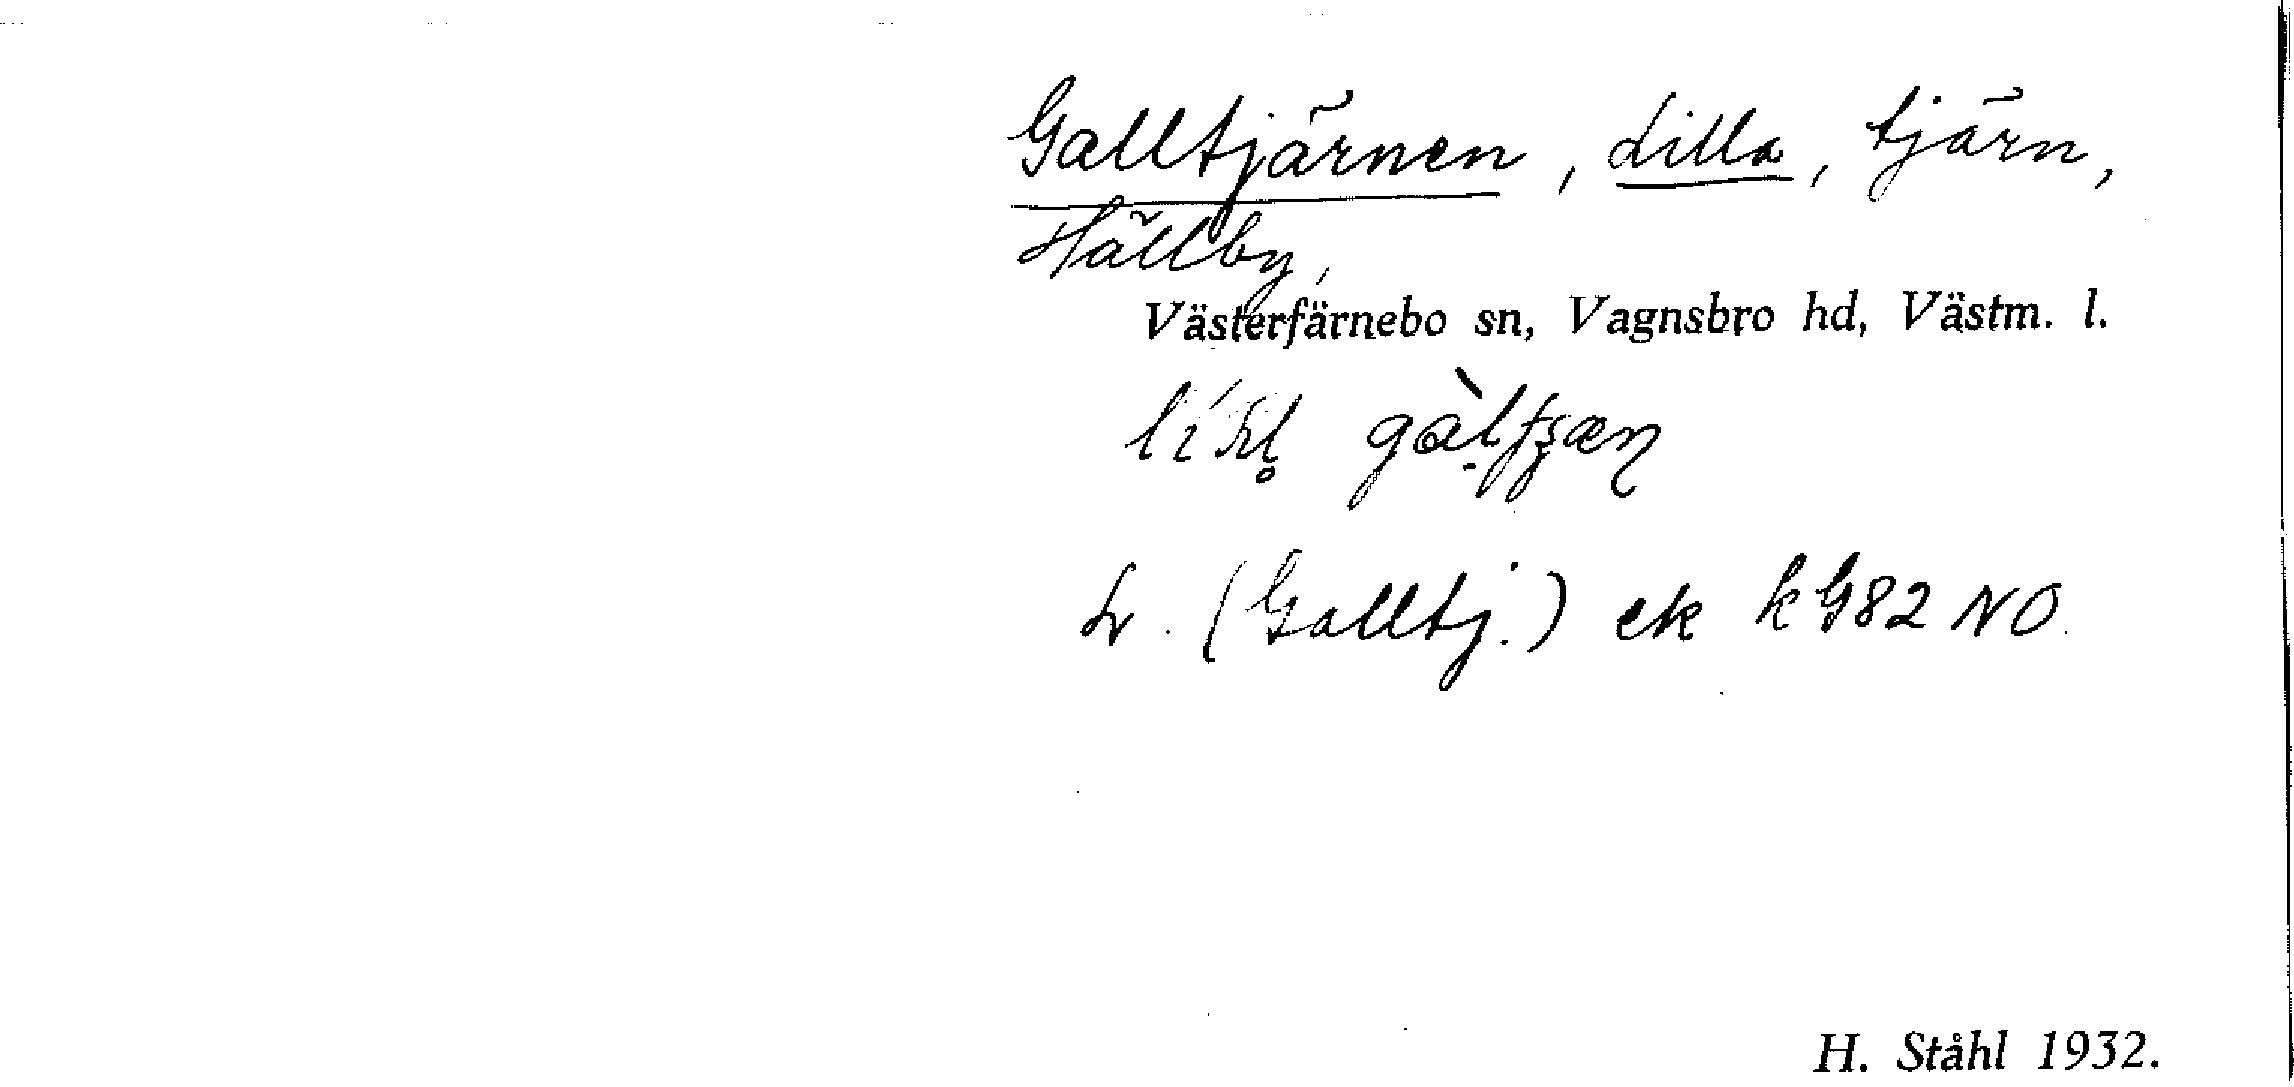 Galltjärnen, Lilla, tjärn,
Hällby,
Västerfärnebo sn, Vagnsbro hd, Västm. l.
(Galltj.) ek k G82 NO.
H. Ståhl 1932.